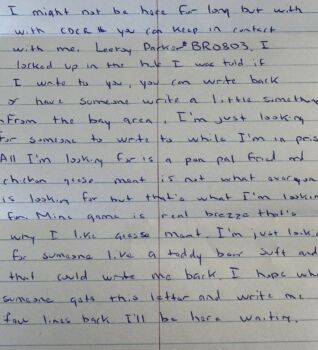 I might not be here for long but with
with CDCR # you can keep in contact
with me. Leeroy Parker BR0803, I
locked up in the hole I was told if
I write to you, you can write back
or have someone write a little something
From the bay area, I'm just looking
for someone to write to while I'm in pris
All I'm looking for is a pen pal fried and
chicken goose meant is not what everyon
is looking for but that's what I'm lookin
for. Mine game is real brezze that's
why I like goose meant. I'm just look
for someone like a teddy bear soft and
that could write me back I hope wh
someone gets this letter and write me
few lines back I'll be here waiting.